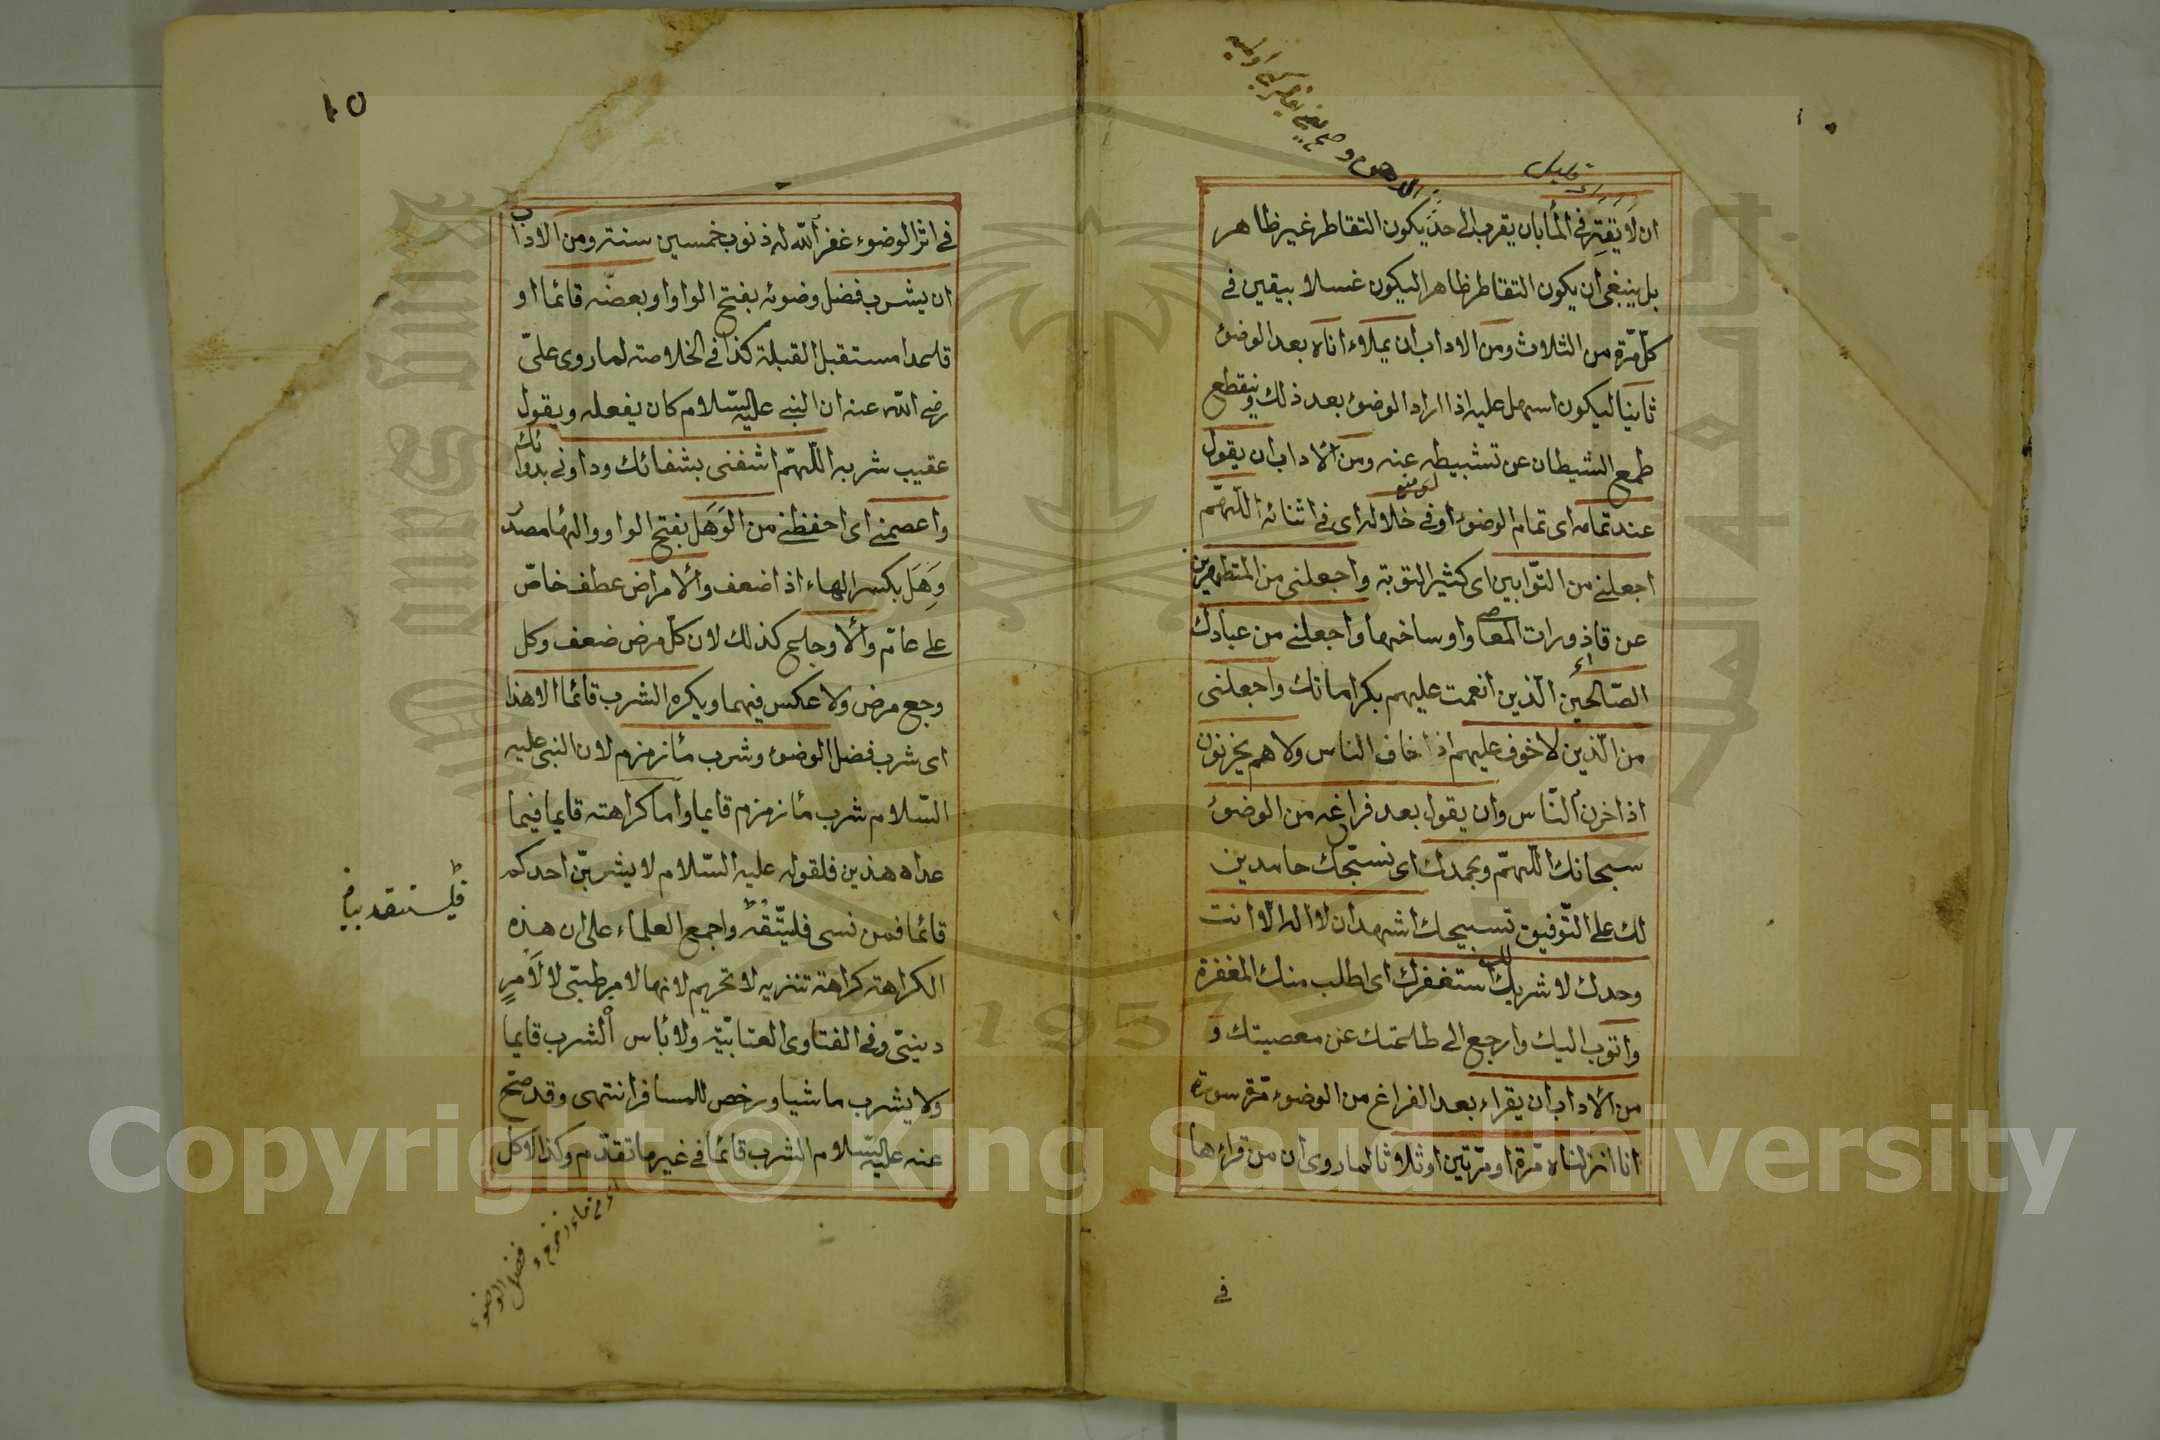 ان لا يقتر في الماء بان يقرب الى حد يكون التقاطر غير ظاهر
بل ينبغي ان يكون التقاطر ظاهرا ليكون غسلا بيقين في
كل مرة من الثلاث ومن الاداب ان يملاء اناه بعد الوضوء
ثانيا ليكون اسهل عليه اذا اراد الوضوء بعد ذلك وينقطع
طمع الشيطان عن تثبيطه عنه ومن الاداب ان يقول
عند تمامه اى تمام الوضوء او في خلاله اى في اثنائه اللهم
اجعلني من التوابين اى كثير التوبة واجعلنى من المتطهرين
عن قاذورات المعاصى واوساخها واجعلنى من عبادك
الصالحين الذين انعمت عليهم بكراماتك واجعلنى
من الذين لا خوف عليهم اذا خاف الناس ولا هم يحزنون
اذا حزن الناس وان يقول بعد فراغه من الوضوء
سبحانك اللهم وبحمدك اى نسبحك حامدين
لك على التوفيق تسبيحك اشهد ان لا اله الا انت
وحدك لا شريك لك استغفرك اى اطلب منك المغفرة
واتوب اليك وارجع الى طاعتك عن معصيتك و
من الاداب ان يقراء بعد الفراغ من الوضوء مرة سورة
انا انزلناه مرة او مرتين او ثلاثا لما روى ان من قراءها
في
١٥
في اثر الوضوء غفر الله له ذنوب خمسين سنة ومن الاداب
ان يشرب فضل وضوئه بفتح الواو او بعضه قائما او
قاعدا مستقبل القبلة كذا في الخلاصة لما روى على
رضي الله عنه ان النبي عليه السلام كان يفعله ويقول
عقيب شربه اللهم اشفنى بشفائك وداونى بدوائك
واعصمني اى احفظني من الوهل بفتح الواو والهاء مصدر
وهل بكسر الهاء اذا ضعف والامراض عطف خاص
على عام والاوجاع كذلك لان كل مرض ضعف وكل
وجع مرض ولا عكس فيهما ويكره الشرب قائما الا هذا
اى شرب فضل الوضوء وشرب ماء زمزم لان النبي عليه
السلام شرب ماء زمزم قايما واما كراهته قايما فيما
عداه هذين فلقوله عليه السلام لا يشربن احدكم
قائما فمن نسى فليتقه واجمع العلماء على ان هذه
الكراهة كراهة تنزيه لا تحريم لانها لامر طبى لا لامر
دينى وفي الفتاوى العتابية ولا باس الشرب قايما
ولا يشرب ماشيا ورخص للمسافر انتهى وقد صح
عنه عليه السلام الشرب قائما في غير ما تقدم وكذا الاكل
فضل الوضوء
Copyright © King Saud University
1957